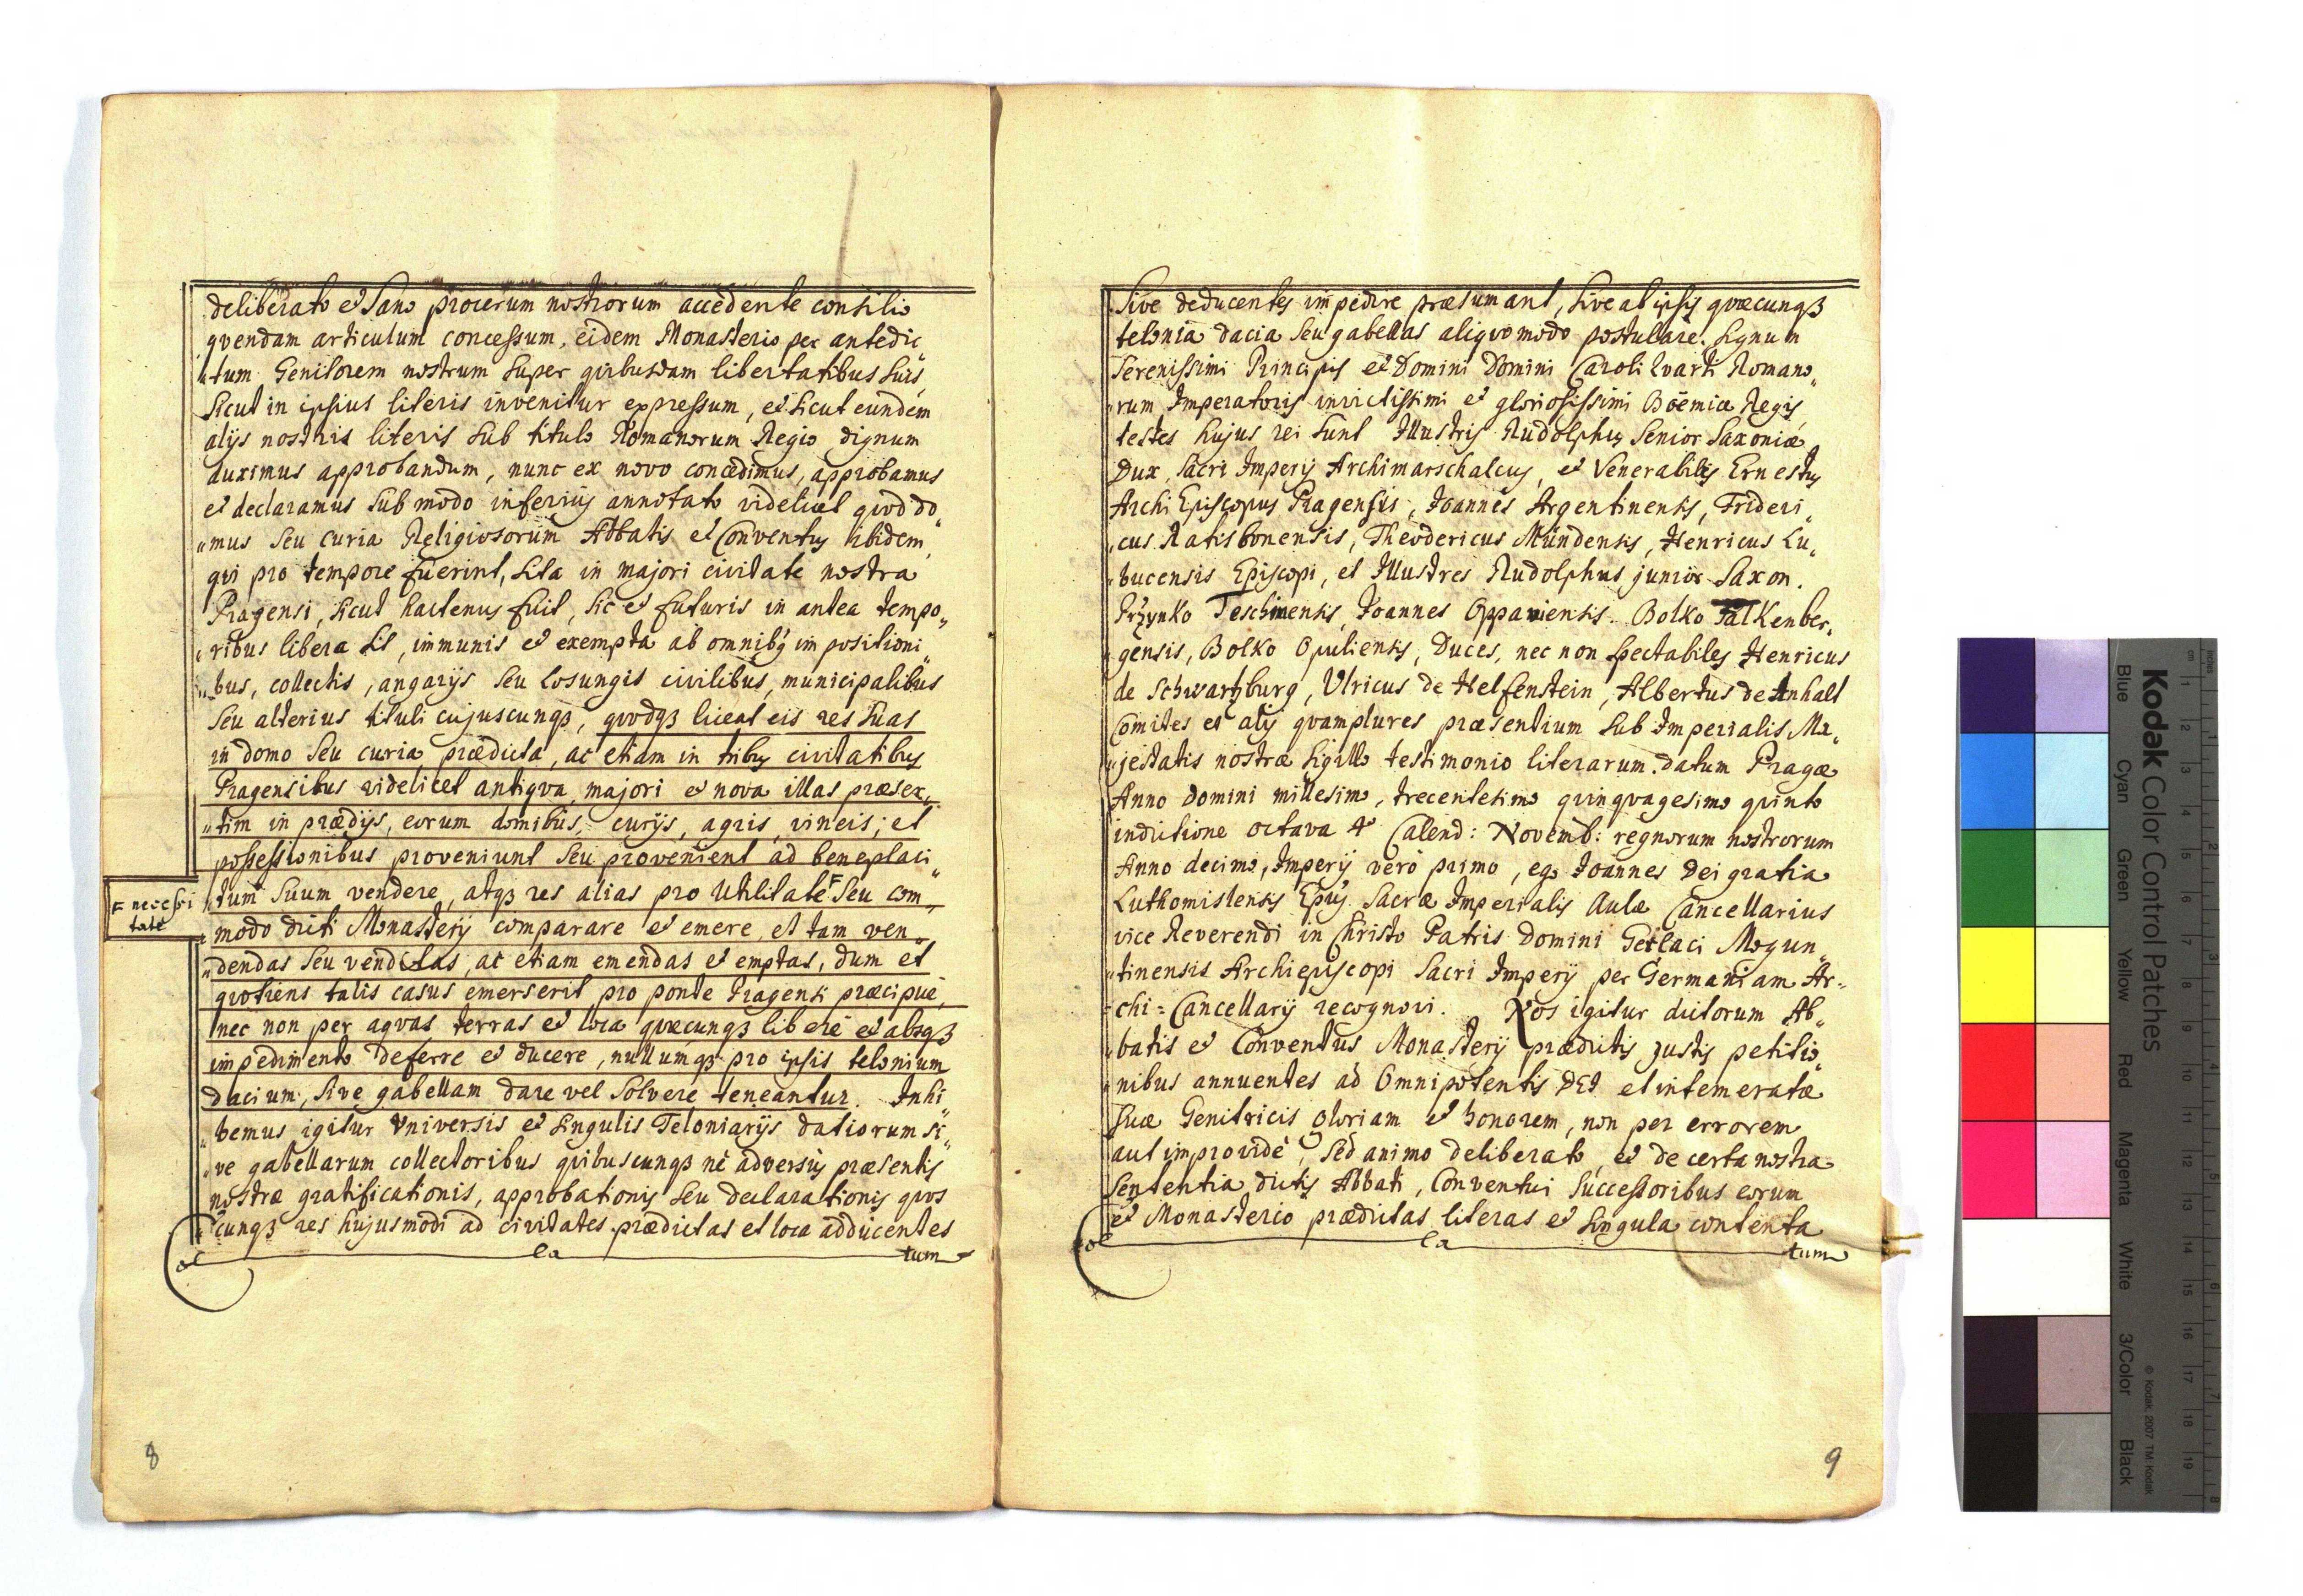 deliberato et Sano procerum nostrorum accedente consilio
qvendam articulum concessum, eidem Monasterio per antedic„
„tum Genitorem nostrum Super qvibusdam libertatibus Suis,
Sicut in ipsius literis invenitur expressum, et Sicut eundem
alijs nostris literis Sub titulo Romanorum Regio dignum
duximus approbandum, nunc ex novo concedimus, approbamus
et declaramus Sub modo inferius annotato videlicet qvod do„
„mus Seu curia Religiosorum Abbatis et Conventus ibidem,
qvi pro tempore fuerint, Sita in majori civitate nostra
Pragensi, Sicut hactenus fuit, Sic et futuris in antea tempo„
„ribus libera Sit, immunis et exempta ab omnibq impositioni„
„bus, collectis, angarijs Seu Losungis civilibus, municipalibus
Seu alterius tituli cujuscunqz, qvodqz liceat eis res Suas
in domo Seu curia prædicta, ac etiam in tribus civitatibus
Pragensibus videlicet antiqva, majori et nova illas præser„
„tim in prædijs, eorum domibus, curijs, agris, vineis, et
possessionibus proveniunt Seu provenient ad beneplaci„
F necessi
tate
„tum Suum vendere, atqz res alias pro Utilitate F Seu com„
„modo dicti Monasterij comparare et emere, et tam ven„
„dendas Seu venditas, ac etiam emendas et emptas, dum et
qvotiens talis casus emerserit pro ponte Pragensi præcipuè,
nec non per aqvas terras et loca qvæcunqz liberè et absqz
impedimento deferre et ducere, nullumqz pro ipsis telonium
dacium, Sive gabellam dare vel Solvere teneantur. Inhi„
„bemus igitur Universis et Singulis Teloniarijs datiorum Si„
„ve gabellarum collectoribus qvibuscunqz nè adversus præsentis
nostræ gratificationis, approbationis Seu declarationis qvos
„cunqz res hujusmodi ad civitates prædictas et loca adducentes
tum
8
Sive deducentes impedire præsumant, Sive ab ipsis qvæcunqz
telonia dacia Seu gabellas aliqvo modo postulare. Signum
Serenissimi Principis et Domini Domini Caroli Qvarti Romano„
„rum Imperatoris invictissimi et gloriosissimi Boëmiæ Regis
testes hujus rei Sunt Illustris Rudolphus Senior Saxoniæ
Dux, Sacri Imperij Archimarschalcus, et Venerabilis Ernestus
Archi Episcopus Pragensis, Joannes Argentinensis, Frideri„
„cus Ratisbonensis, Theodericus Mündensis, Henricus Lu„
„bucensis Episcopi, et Illustres Rudolphus junior Saxon.
Przynko Teschinensis, Joannes Oppaviensis. Bolko Falkenber„
„gensis, Bolko Opuliensis, Duces, nec non Spectabiles Henricus
de Schwartzburg, Ulricus de Helfenstein, Albertus de Anhalt
Comites et alij qvamplures præsentium Sub Imperialis Ma„
„jestatis nostræ Sigillo testimonio literarum. datum Pragæ
Anno Domini millesimo, trecentesimo qvinqvagesimo qvinto
indictione octava 4º Calend: Novemb: regnorum nostrorum
Anno decimo, Imperij verò primo, ego Joannes Dei gratia
Luthomislensis Epûs Sacræ Imperialis Aulæ Cancellarius
vice Reverendi in Christo Patris Domini Gerlaci Mogun„
„tinensis Archiepiscopi Sacri Imperij per Germaniam Ar„
„chi=Cancellarij recognovi. Nos igitur dictorum Ab„
„batis et Conventus Monasterij prædictis justis petitio„
„nibus annuentes ad Omnipotentis DEI et intemeratæ
Suæ Genitricis gloriam et honorem, non per errorem
aut improvidè, Sed animo deliberato, et de certa nostra
Sententia dictis Abbati, Conventui Successoribus eorum
et Monasterio prædictas literas et Singula contenta
tum
9
Kodak Color Control Patches
Blue Cyan Green Yellow Red Magenta White 3/Color Black
© Kodak, 2007 TM: Kodak